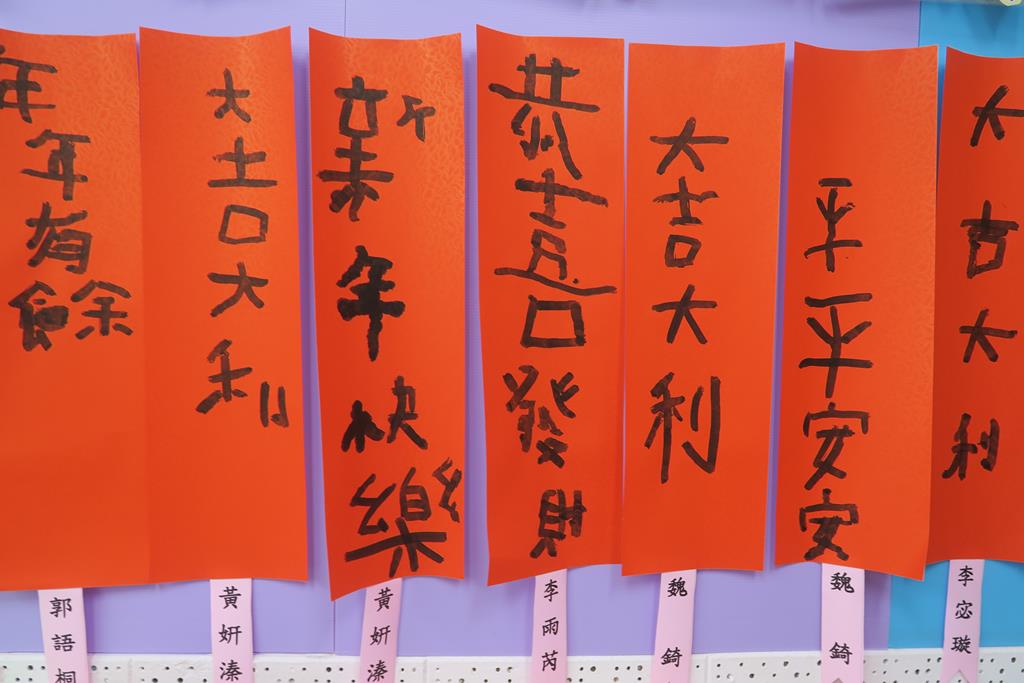 年年有餘
大吉大利
新年快樂
恭喜發財
大吉大利
平平安安
大吉大利
郭語桐
黃妍溱
黃妍溱
李雨芮
魏錡
魏錡
李宓璇